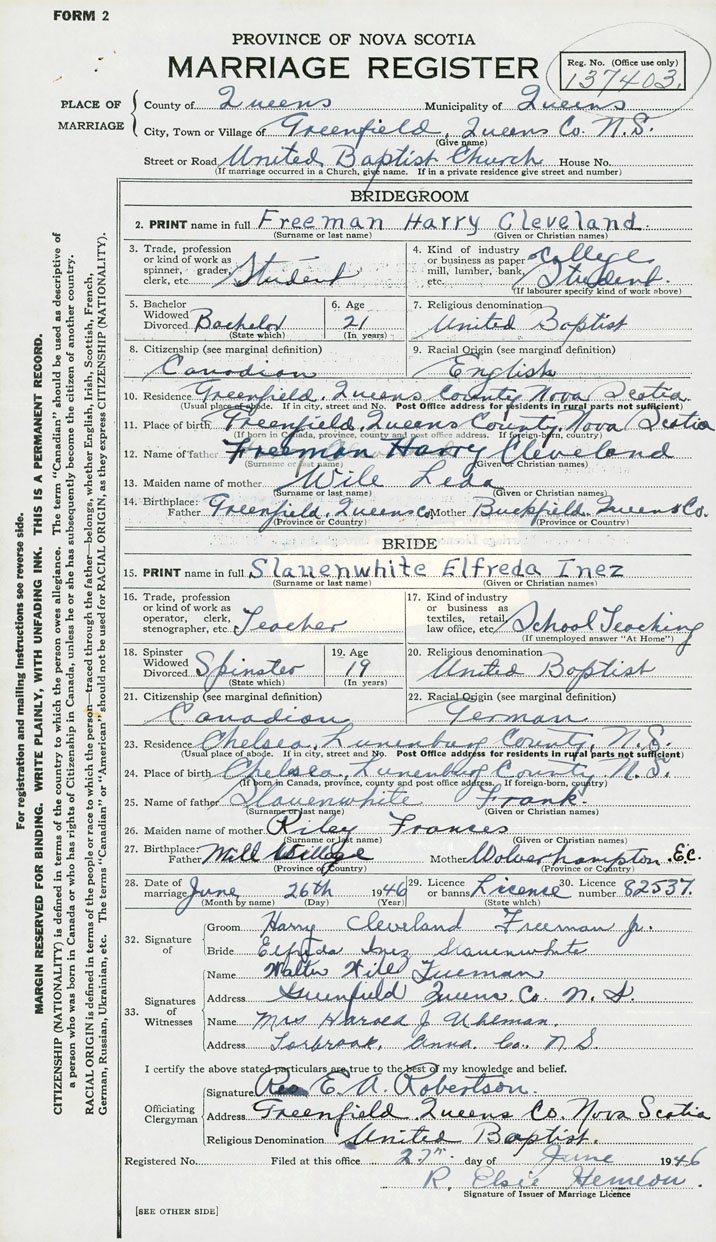 FORM 2
PROVINCE OF NOVA SCOTIA
MARRIAGE REGISTER
Reg. No. (Office use only)
137403.
PLACE OF MARRIAGE
County of Queens Municipality of Queens
City, Town or Village of Greenfield, Queens Co. N.S.
(Give name)
Street or Road United Baptist Church House No.
(If marriage occurred in a Church, give name. If in a private residence give street and number)
BRIDEGROOM
2. PRINT name in full Freeman Harry Cleveland
(Surname or last name) (Given or Christian names)
3. Trade, profession or kind of work as spinner, grader, clerk, etc. Student
4. Kind of industry or business as paper mill, lumber, bank, etc. College Student.
(If labourer specify kind of work above)
5. Bachelor Widowed Divorced Bachelor
(State which)
6. Age 21
(In years)
7. Religious denomination
United Baptist
8. Citizenship (see marginal definition)
Canadian
9. Racial Origin (see marginal definition)
English
10. Residence Greenfield, Queens County Nova Scotia
(Usual place of abode. If in city, street and No. Post Office address for residents in rural parts not sufficient)
11. Place of birth Greenfield, Queens County, Nova Scotia
(If born in Canada, province, county and post office address. If foreign-born, country)
12. Name of father Freeman Harry Cleveland
(Surname or last name) (Given or Christian names)
13. Maiden name of mother Wile Leda
(Surname or last name) (Given or Christian names)
14. Birthplace: Father Greenfield, Queens Co. Mother Buckfield, Queens Co.
(Province or Country) (Province or Country)
BRIDE
15. PRINT name in full Slauenwhite Elfreda Inez
(Surname or last name) (Given or Christian names)
16. Trade, profession or kind of work as operator, clerk, stenographer, etc. Teacher
17. Kind of industry or business as textiles, retail law office, etc. School Teaching
(If unemployed answer "At Home")
18. Spinster Widowed Divorced Spinster
(State which)
19. Age 19
(In years)
20. Religious denomination
United Baptist
21. Citizenship (see marginal definition)
Canadian
22. Racial Origin (see marginal definition)
German
23. Residence Chelsea, Lunenburg County, N.S.
(Usual place of abode. If in city, street and No. Post Office address for residents in rural parts not sufficient)
24. Place of birth Chelsea, Lunenburg County N.S.
(If born in Canada, province, county and post office address. If foreign-born, country)
25. Name of father Slauenwhite Frank.
(Surname or last name) (Given or Christian names)
26. Maiden name of mother Riley Frances
(Surname or last name) (Given or Christian names)
27. Birthplace: Father Mill Village Mother Wolverhampton, E.C.
(Province or Country) (Province or Country)
28. Date of marriage June 26th 1946
(Month by name) (Day) (Year)
29. Licence or banns Licence
(State which)
30. Licence number 82537.
32. Signature of
Groom Harry Cleveland Freeman Jr.
Bride Elfreda Inez Slauenwhite
33. Signatures of Witnesses
Name Walter Wile Freeman
Address Greenfield Queens Co. N.S.
Name Mrs Harold J. Uhlman.
Address Torbrook, Anna. Co., N.S.
I certify the above stated particulars are true to the best of my knowledge and belief.
Officiating Clergyman
Signature Rev E. A. Robertson.
Address Greenfield Queens Co. Nova Scotia
Religious Denomination United Baptist.
Registered No. Filed at this office 27th day of June 1946
R. Elsie Hemeon.
Signature of Issuer of Marriage Licence
[SEE OTHER SIDE]
For registration and mailing instructions see reverse side.
MARGIN RESERVED FOR BINDING. WRITE PLAINLY, WITH UNFADING INK. THIS IS A PERMANENT RECORD.
CITIZENSHIP (NATIONALITY) is defined in terms of the country to which the person owes allegiance. The term "Canadian" should be used as descriptive of
a person who was born in Canada or who has rights of Citizenship in Canada, unless he or she has subsequently become the citizen of another country.
RACIAL ORIGIN is defined in terms of the people or race to which the person—traced through the father—belongs, whether English, Irish, Scottish, French,
German, Russian, Ukrainian, etc. The terms "Canadian" or "American" should not be used for RACIAL ORIGIN, as they express CITIZENSHIP (NATIONALITY).